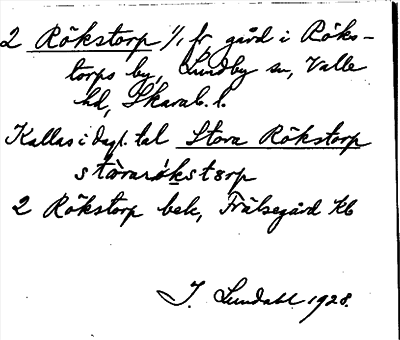 2 Rökstorp 1/1 fr gård i Röks-
torps by, Lundby sn, Valle
hd, Skarab. l.
Kallas i dagl. tal Stora Rökstorp
2 Rökstorp bek, Frälsegård Kb
J. Lundahl 1928.